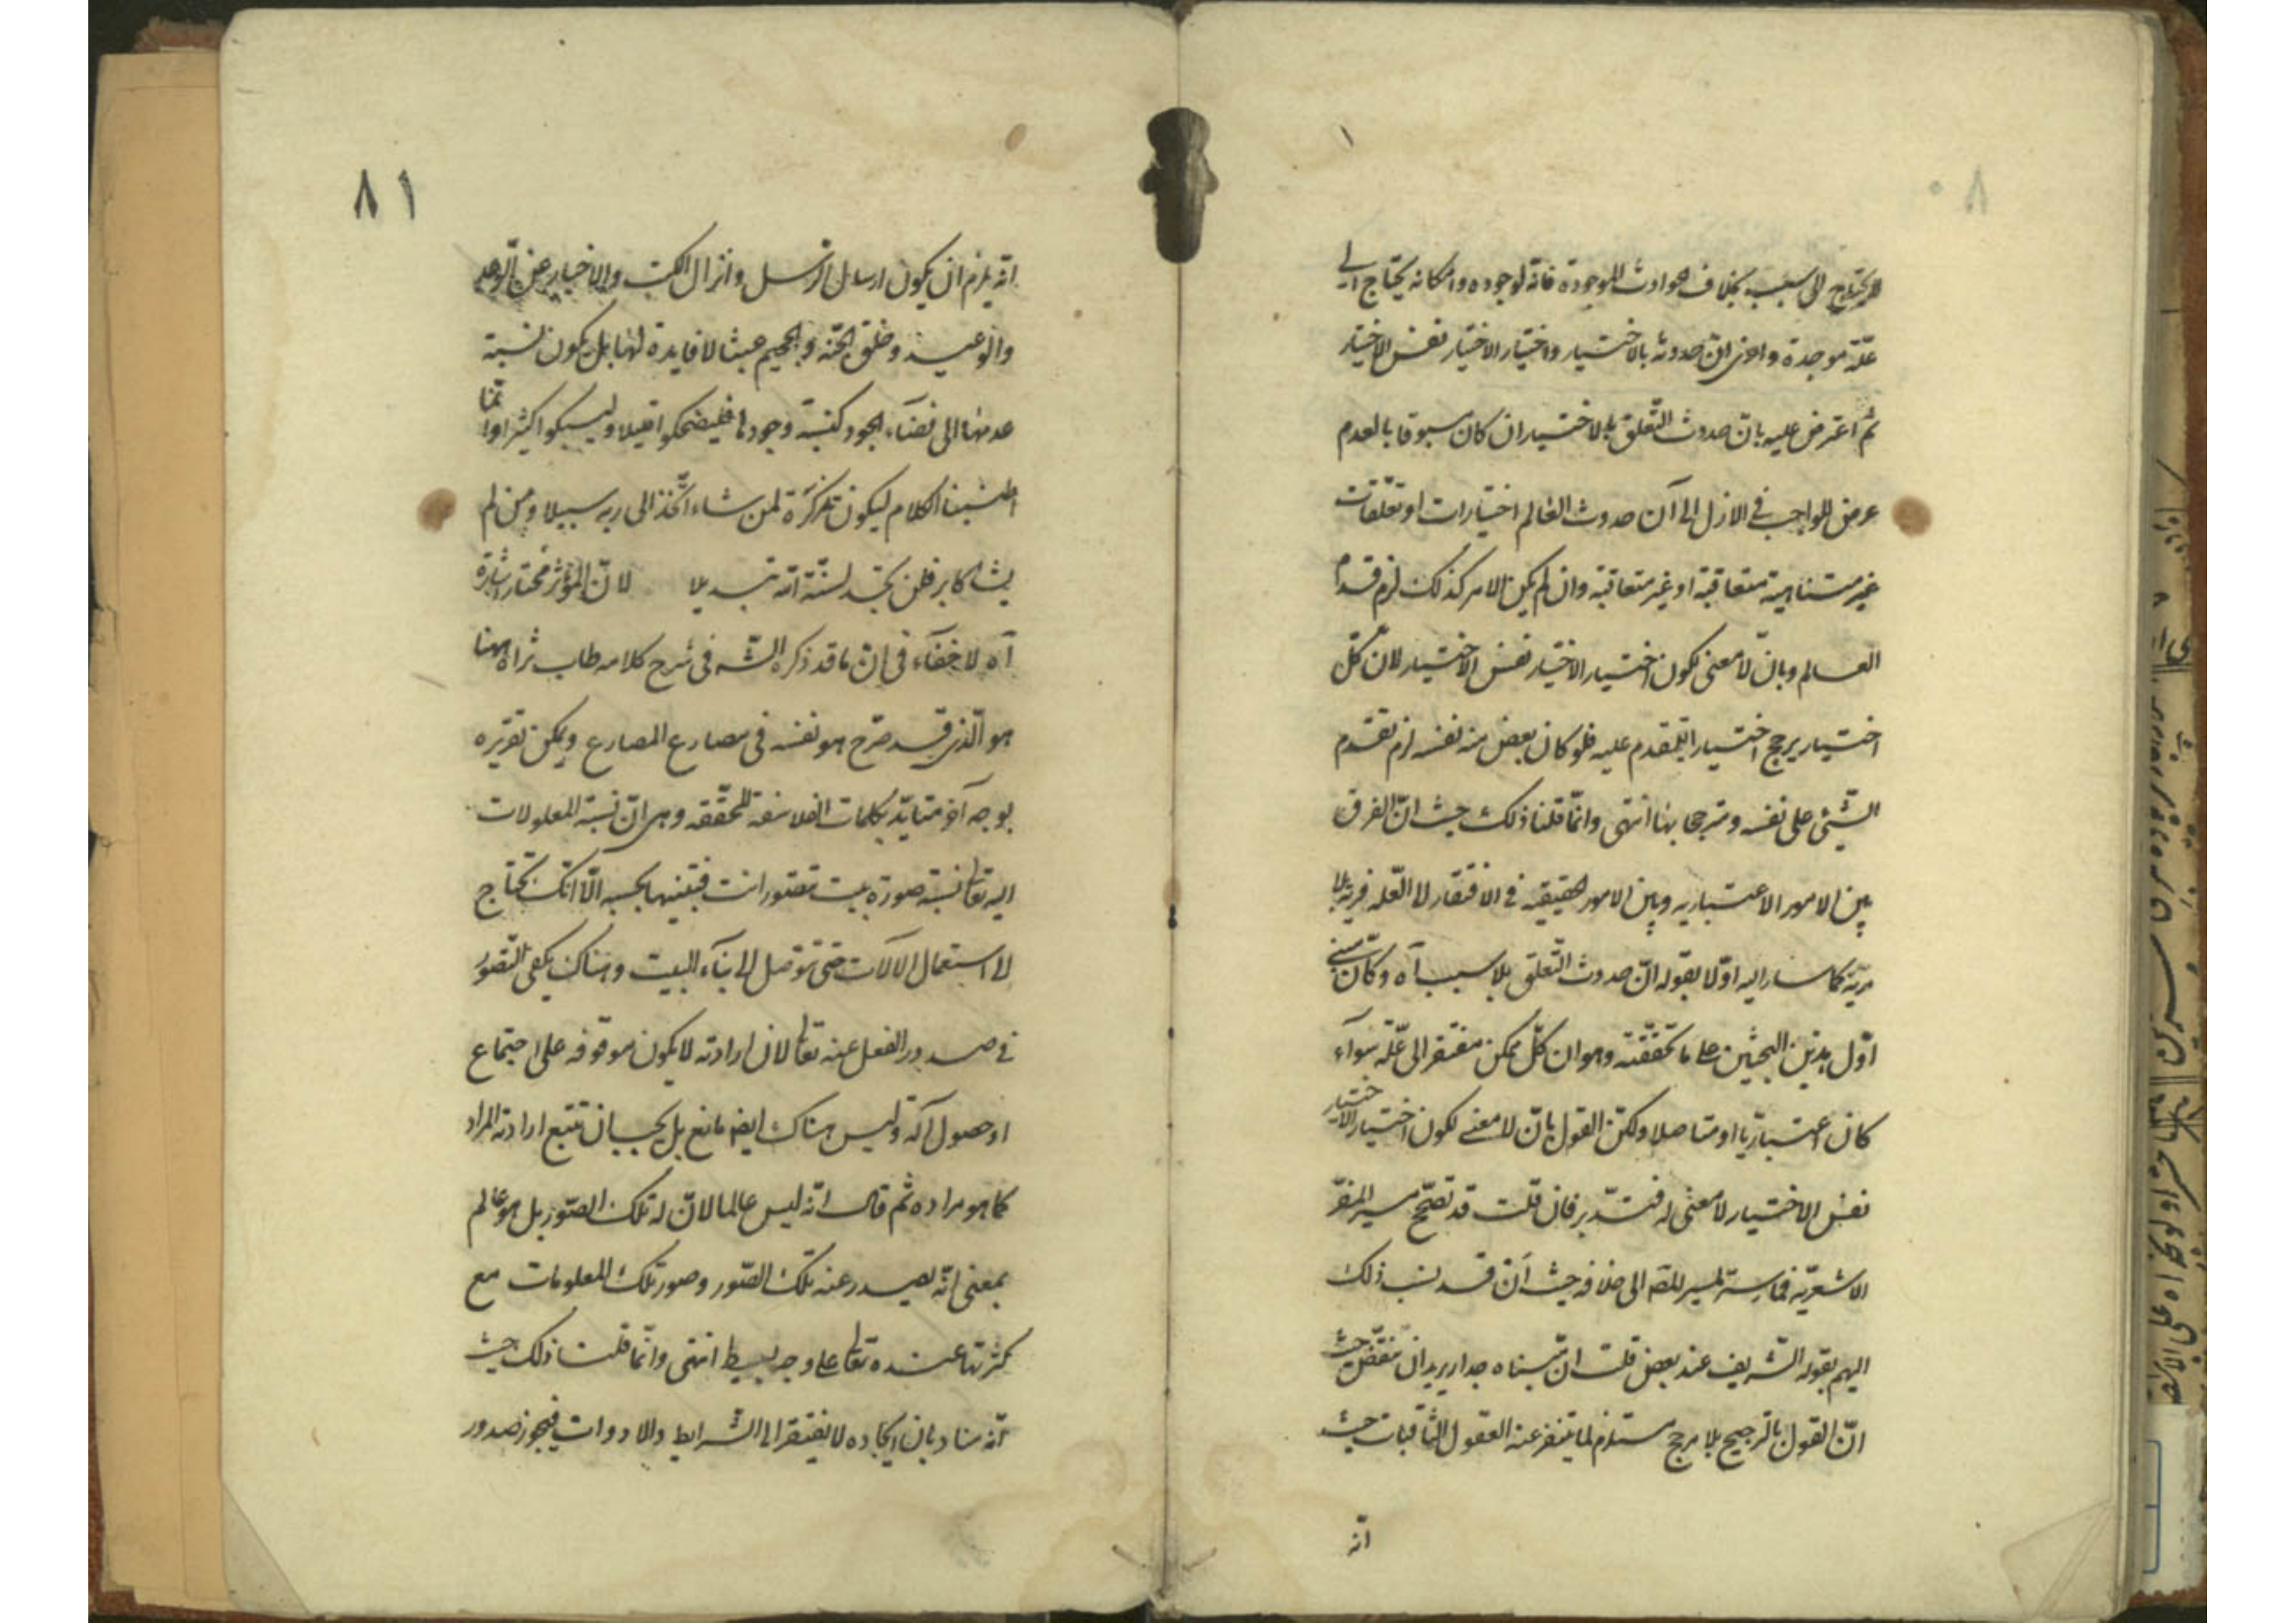 ٨٠
لا يحتاج الى سبب بخلاف الحوادث الموجودة فانه لوجوده وامكانه يحتاج الى
علّة موجدة واخرى انّ حدوثه بالاختيار واختيار الاختيار نفس الاختيار
ثم اعترض عليه بانّ حدوث التعلق بالاختيار ان كان مسبوقا بالعدم
عرض للواجب في الازل الى آن حدوث العالم اختيارات او تعلّقات
غير متناهية متعاقبة او غير متعاقبة وان لم يكن الامر كذلك لزم قدم
العالم وبانّ لا معنى لكون اختيار الاختيار نفس الاختيار لانّ كلّ
اختيار يرجح اختيار المتقدم عليه فلو كان بعض منه نفسه لزم تقدم
الشّئ على نفسه ومترجحا بها انتهى وانّما قلنا ذلك حيث انّ الفرق
بين الامور الاعتباريه وبين الامور الحقيقيه في الافتقار الى العّله فرية بلا
مريّة كما اشار اليه اوّلا بقوله انّ حدوث التّعلق بلا سبب آه وكانّ مبنى
اوّل هذين البحثين على ما تحققته وهو ان كلّ ممكن مفتقر الى علّة سوآء
كان اعتباريّا او متاصلا ولكنّ القول بانّ لا معنى لكون اختيار الاختيار
نفس الاختيار لا معنى له فتدّبر فان قلت قد تصحّح مسير المفرّ
الاشعريّه فما سرّ المسير للمصه الى خلافه حيث انّ قد نسب ذلك
اليهم بقوله الشّريف عند بعض قلت انّ مبناه جدار يريد ان ينقضّ حيث
انّ القول بالترجيح بلا مرجح مستلزم لما يتنفر عنه العقول الثّاقبات حيث
انّه
٨١
انّه يلزم ان يكون ارسال الرّسل وانزال الكتب والاخبار عن الوعد
والوعيد وخلق الجنّه والجحيم عبثا لا فايدة لها بل يكون نسبة
عدمها الى فضآء الجود كنسبة وجودها فليضحكوا قليلا وليبكوا كثيرا وانّما
اطنبنا الكلام ليكون تذكرة لمن شاء اتّخذ الى ربه سبيلا ومن لم
يشا كابر فلن تجد لسنّة الله تبديلا لانّ المؤثر مختار اشارة
آه لا خفآء في انّ ما قد ذكره الشّه في شرح كلامه طاب ثراه ههنا
هو الّذى قد صرّح هو نفسه في مصارع المصارع ويمكن تقريره
بوجه آخر متايّد بكلمات الفلاسفه المحقّقه وهى انّ نسبة المعلولات
اليه تعا نسبة صورة بيت تصّور انت فتبنيها بحسبه الّا انّك تحتاج
الى استعمال الالات حتى تتوصل الى بنآء البيت وهناك يكفى التّصور
في صدور الفعل عنه تعا لان ارادته لا يكون موقوفه على اجتماع
او حصول آلة وليس هناك ايضا مانع بل يجب ان تتبع ارادته المراد
كما هو مراده ثم قال انّه ليس عالما لانّ له تلك الصّور بل هو عالم
بمعنى انّه يصدر عنه تلك الصّور وصور تلك المعلومات مع
كثرتها عنده تعا على وجه بسيط انتهى وانّما قلنا ذلك حيث
انّه مناد بان ايجاده لا يفتقر الى الشّرايط والادوات فيجوز صدور